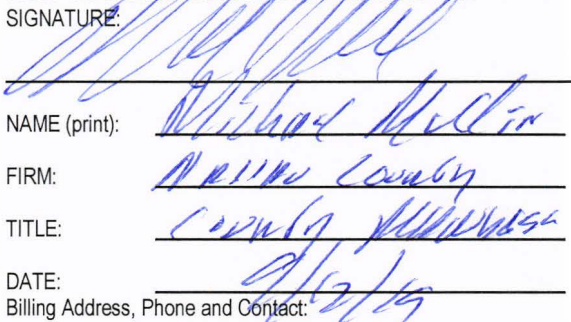 SIGNATURE:
NAME (print): Michael Mullin
FIRM: Nassau County
TITLE: County
DATE: 9/12/19
Billing Address, Phone and Contact: